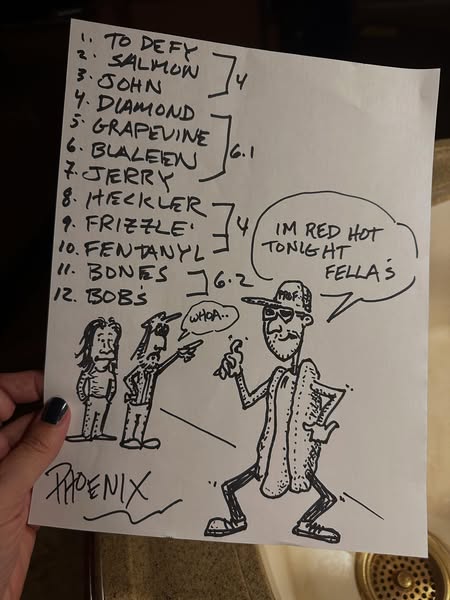 1. TO DEFY
2. SALMON
3. JOHN
4
4. DIAMOND
5. GRAPEVINE
6. BLALEEN
7. JERRY
6.1
8. HECKLER
9. FRIZZLE'
10. FENTANYL
4
11. BONES
12. BOB'S
6.2
IM RED HOT
TONIGHT
FELLA'S
PROF.
WHOA..
PHOENIX